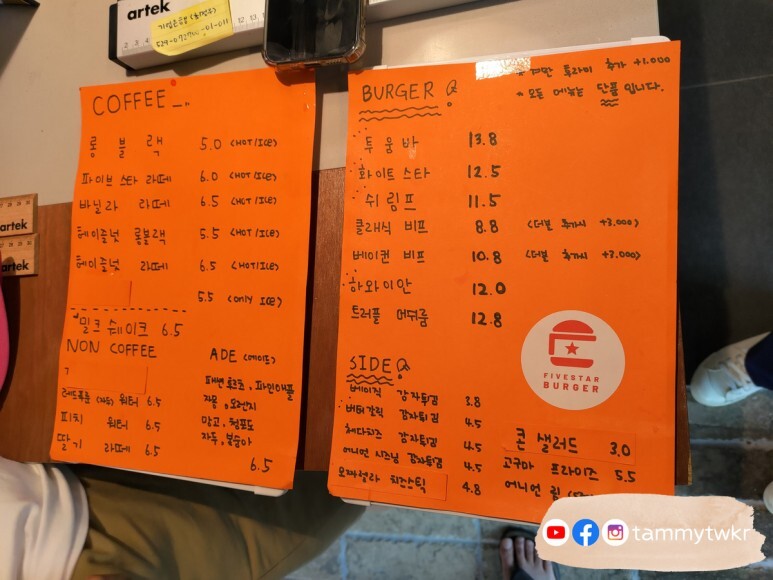 artek
artek
artek
COFFEE
롱 블 랙 5.0 (HOT/ICE)
파이브 스타 라떼 6.0 (HOT/ICE)
바닐라 라떼 6.5 (HOT/ICE)
헤이즐넛 롱블랙 5.5 (HOT/ICE)
헤이즐넛 라떼 6.5 (HOT/ICE)
5.5 (ONLY ICE)
밀크 쉐이크 6.5
NON COFFEE
워터 6.5
피치 워터 6.5
딸기 라떼 6.5
ADE (에이드)
패션후르츠, 파인애플
자몽, 오렌지
망고, 청포도
자두, 복숭아
6.5
BURGER
추가 +1.000
* 모든 메뉴는 단품입니다.
투움바 13.8
화이트 스타 12.5
쉬림프 11.5
클래식 비프 8.8 (더블 추가시 +3.000)
베이컨 비프 10.8 (더블 추가시 +3.000)
하와이안 12.0
트러플 머쉬룸 12.8
FIVESTAR
BURGER
SIDE
베이직 감자튀김 3.8
버터갈릭 감자튀김 4.5
체다치즈 감자튀김 4.5
어니언 시즈닝 감자튀김 4.5
모짜렐라 치즈스틱 4.8
콘 샐러드 3.0
고구마 프라이즈 5.5
어니언 링
tammytwkr